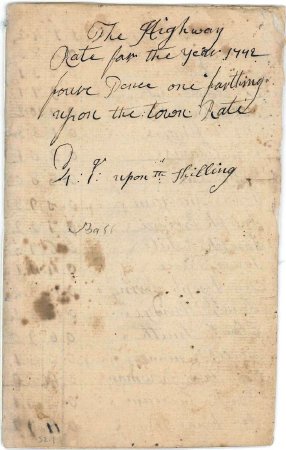 The Highway
Rate for the year 1742
foure Pence one farthing
upon the town Rate
D q
4 : 1 : upon th Shilling
Bass